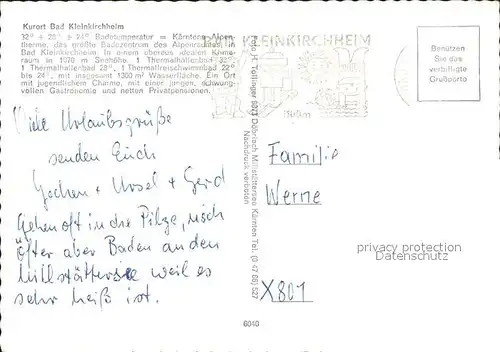 Kurort Bad Kleinkirchheim
32° + 28° + 24° Badetemperatur = Kärntens Alpen-
therme, das größte Badezentrum des Alpenraumes, in
Bad Kleinkirchheim. In einem überaus idealen Klima-
raum in 1078 m Seehöhe. 1 Thermalhallenbad 32°
1 Thermalhallenbad 28°, 1 Thermalfreischwimmbad 22°
bis 24°, mit insgesamt 1300 m² Wasserfläche. Ein Ort
mit jugendlichem Charme, mit einer jungen, schwung-
vollen Gastronomie und netten Privatpensionen.
BAD KLEINKIRCHHEIM
Benützen
Sie das
verbilligte
Grußporto
Viele Urlaubsgrüße
senden Euch
Jochen + Ursel + Gerd
Gehen oft in die Pilze, noch
öfter aber Baden an den
Millstättersee weil es
sehr heiß ist.
Döbriach Millstättersee Kärnten Tel. (0 42 46) 527
Nachdruck verboten
Familie
Werne
X801
privacy protection
Datenschutz
6040